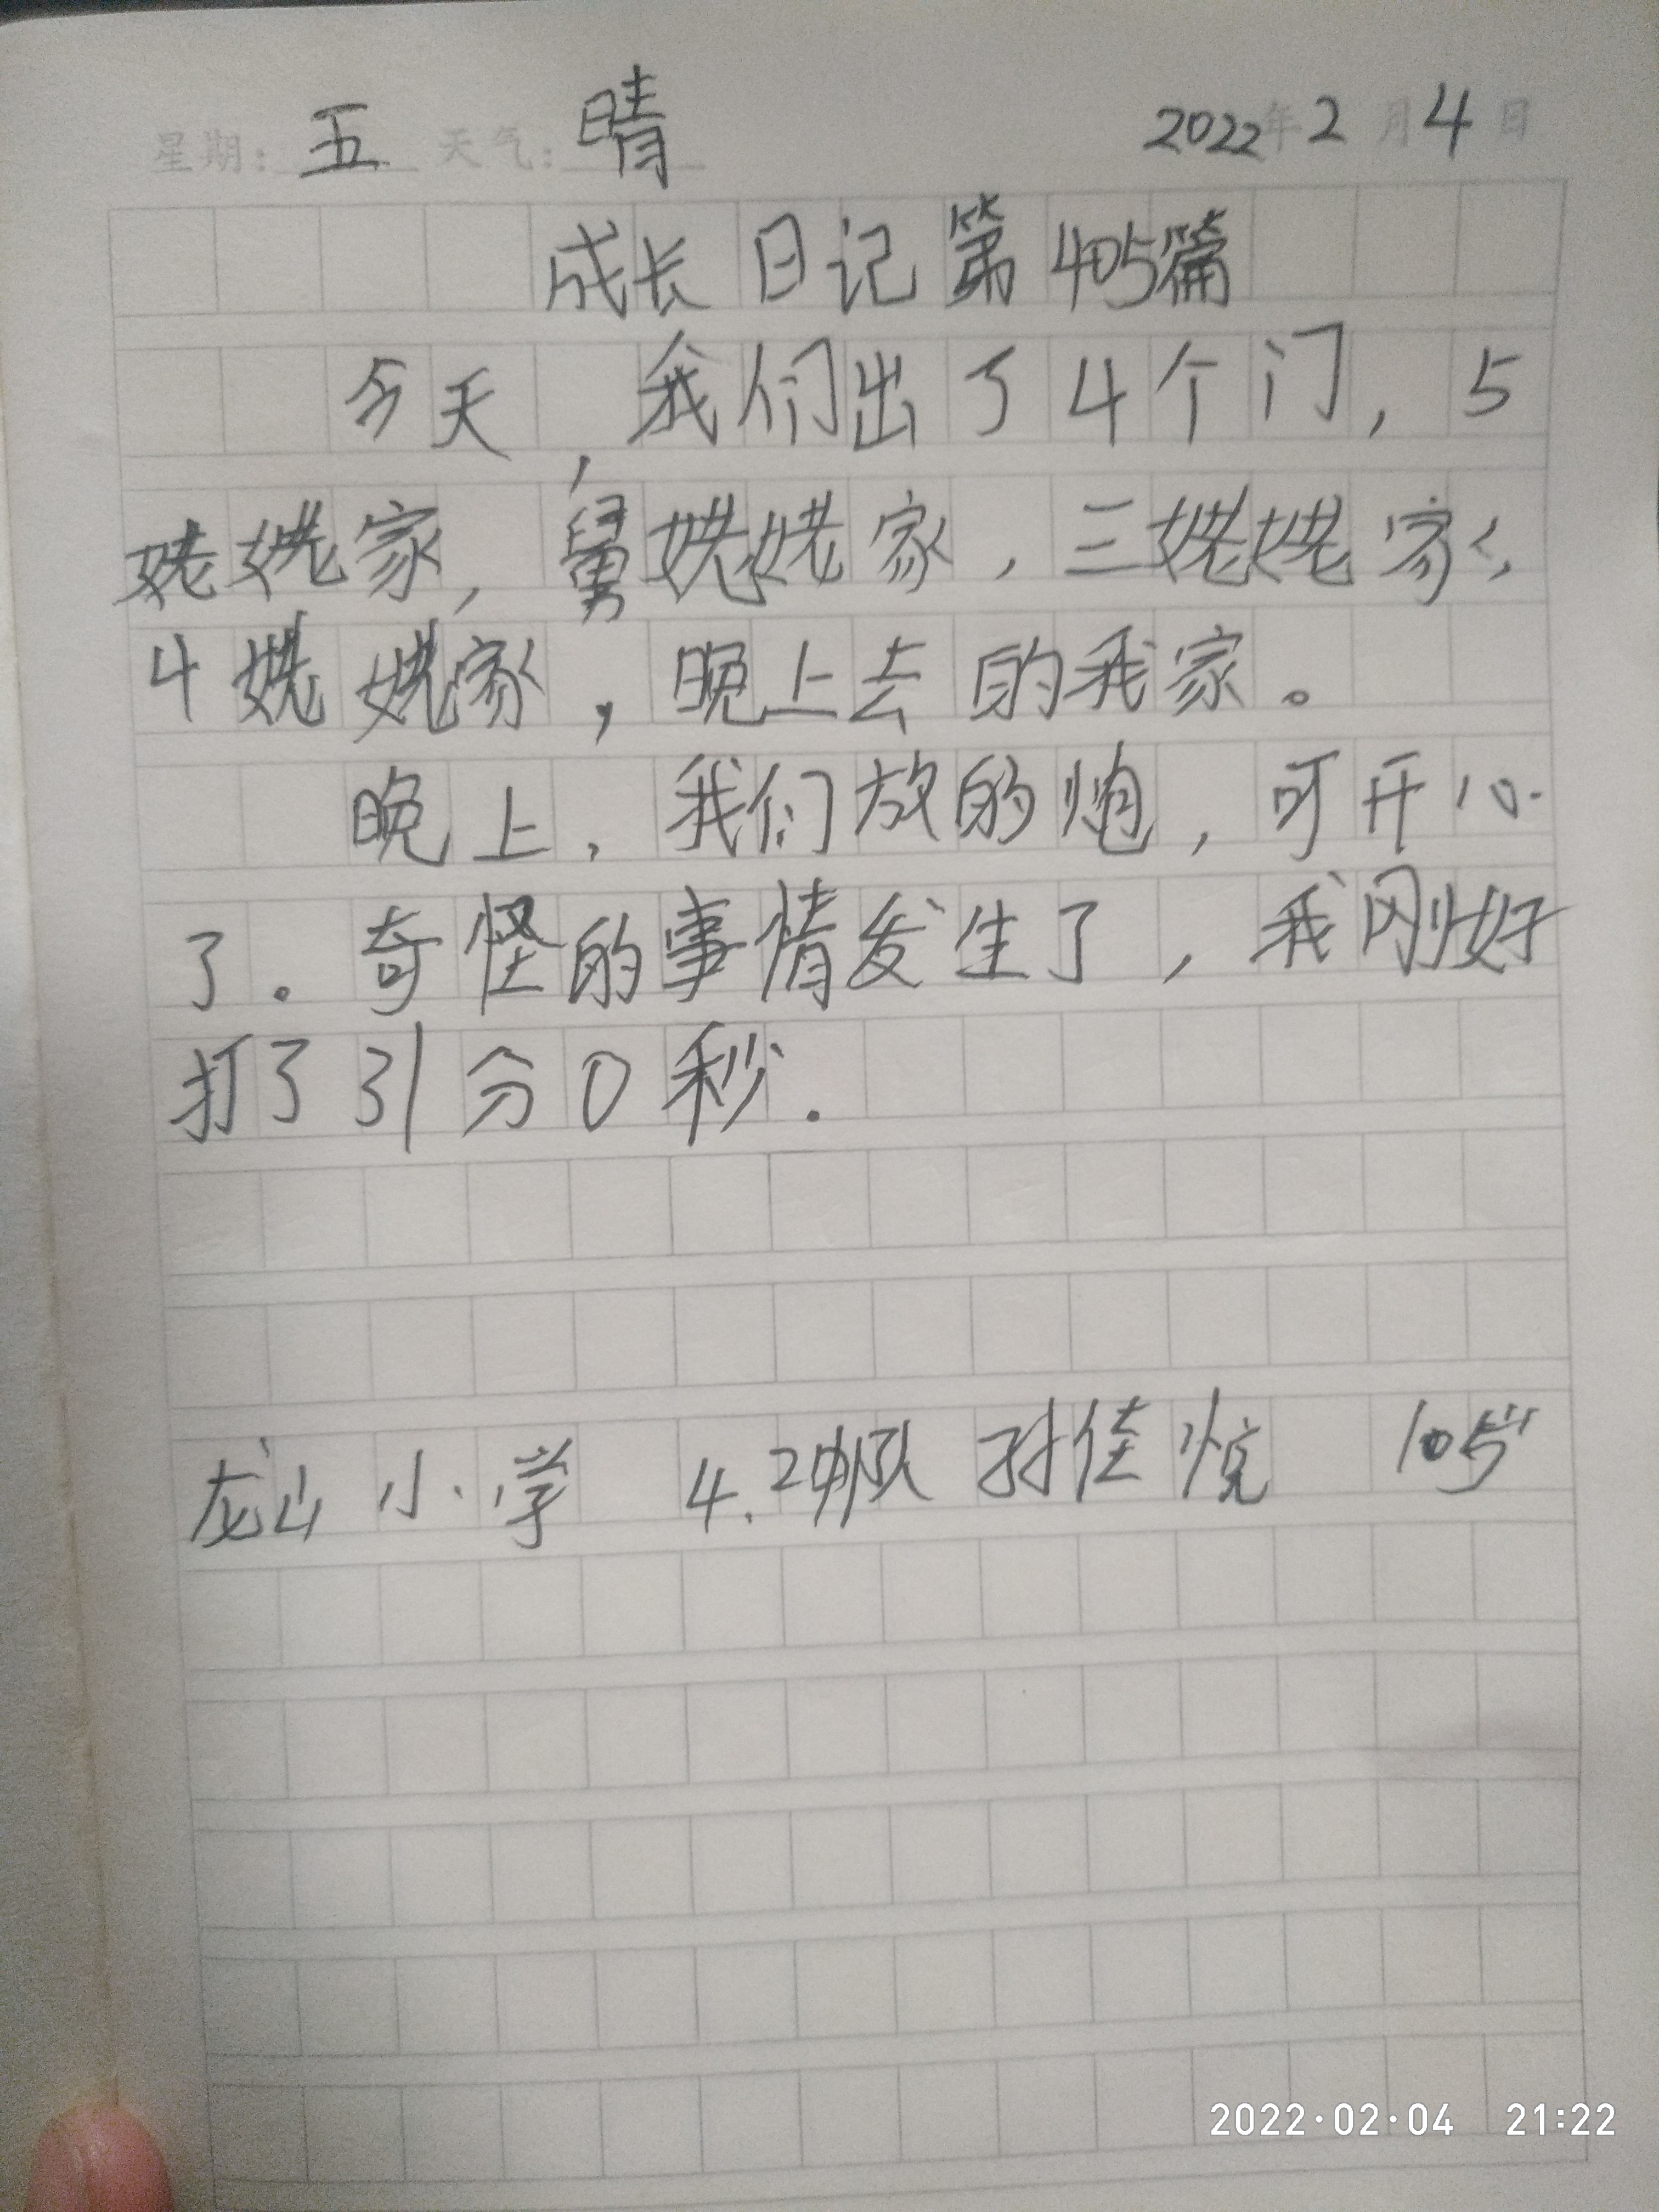 星期：五 天气：晴 2022年2月4日
成长日记第405篇
今天，我们出了4个门，5
姥姥家，舅姥姥家，三姥姥家，
4姥姥家，晚上去的我家。
晚上，我们放的炮，可开心
了。奇怪的事情发生了，我刚好
打了31分0秒.
龙山小学 4.2中队 孙佳悦 10岁
2022·02·04 21:22